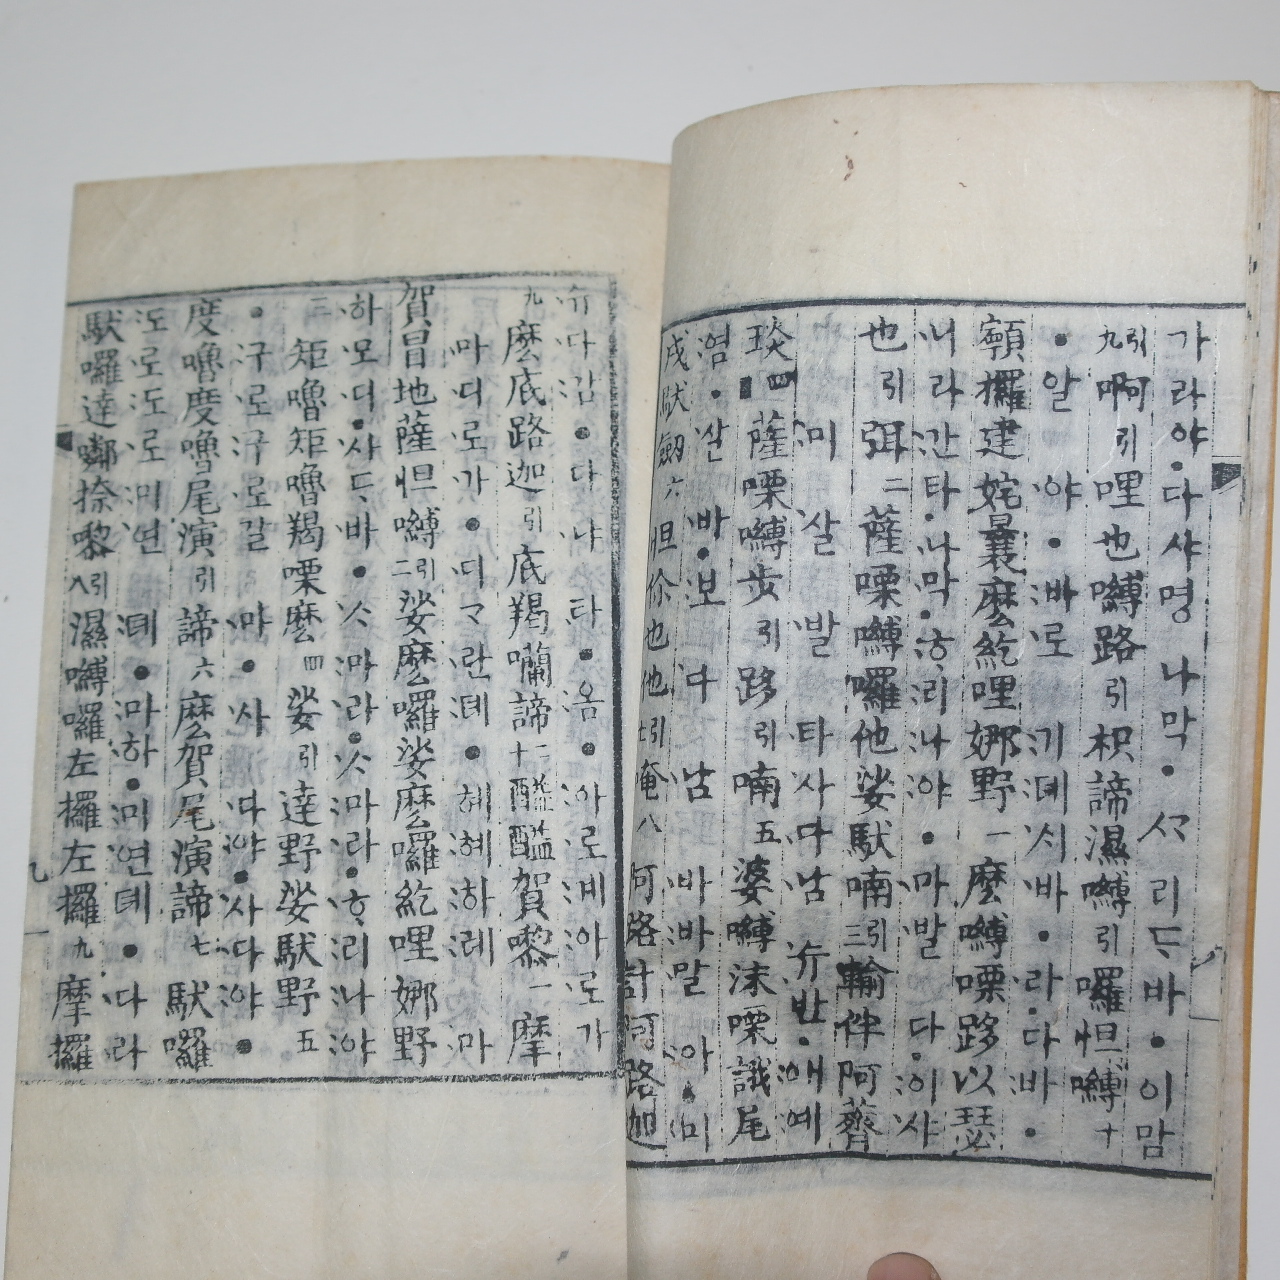 가라야·다샤명 나막· 리 바·이맘
九引啊引哩也嚩路引枳諦濕嚩引囉怛嚩十
·알 야·바로 기 바·라·다바·
額攞建姹曩麼紇哩娜野一麼嚩㗚跢以瑟
니라간타·나막· 리나야·마발 다·이샤
也引弭二薩㗚嚩囉他娑馱喃引三輸伴阿薺
미 살 발 타사다남 슈반·애예
琰四薩㗚嚩步引跢引喃五婆嚩沫㗚誐尾
염·살 바·보 다 남 바바말 아·미
戍馱 六怛 也他引七唵八阿路計阿路迦
슈다감·다냐타·옴·아로비아로가
九麼底路迦引底羯囒諦十一醯醯賀 一摩
마디로가·디 란뎨·혜혜하례 마
賀冒地薩怛嚩引二娑麼囉娑麼囉紇哩娜野
하모디·사 바· 마라· 마라· 리나야
三矩嚕矩嚕羯㗚麼四娑引達野娑馱野五
·구로구로갈 마·사 다야·사다야·
度嚕度嚕尾演引諦六麼賀尾演諦七馱囉
도로도로미연 뎨·마하·미연뎨·다라
馱囉達 捺 引八濕嚩囉左攞左攞九摩攞
九